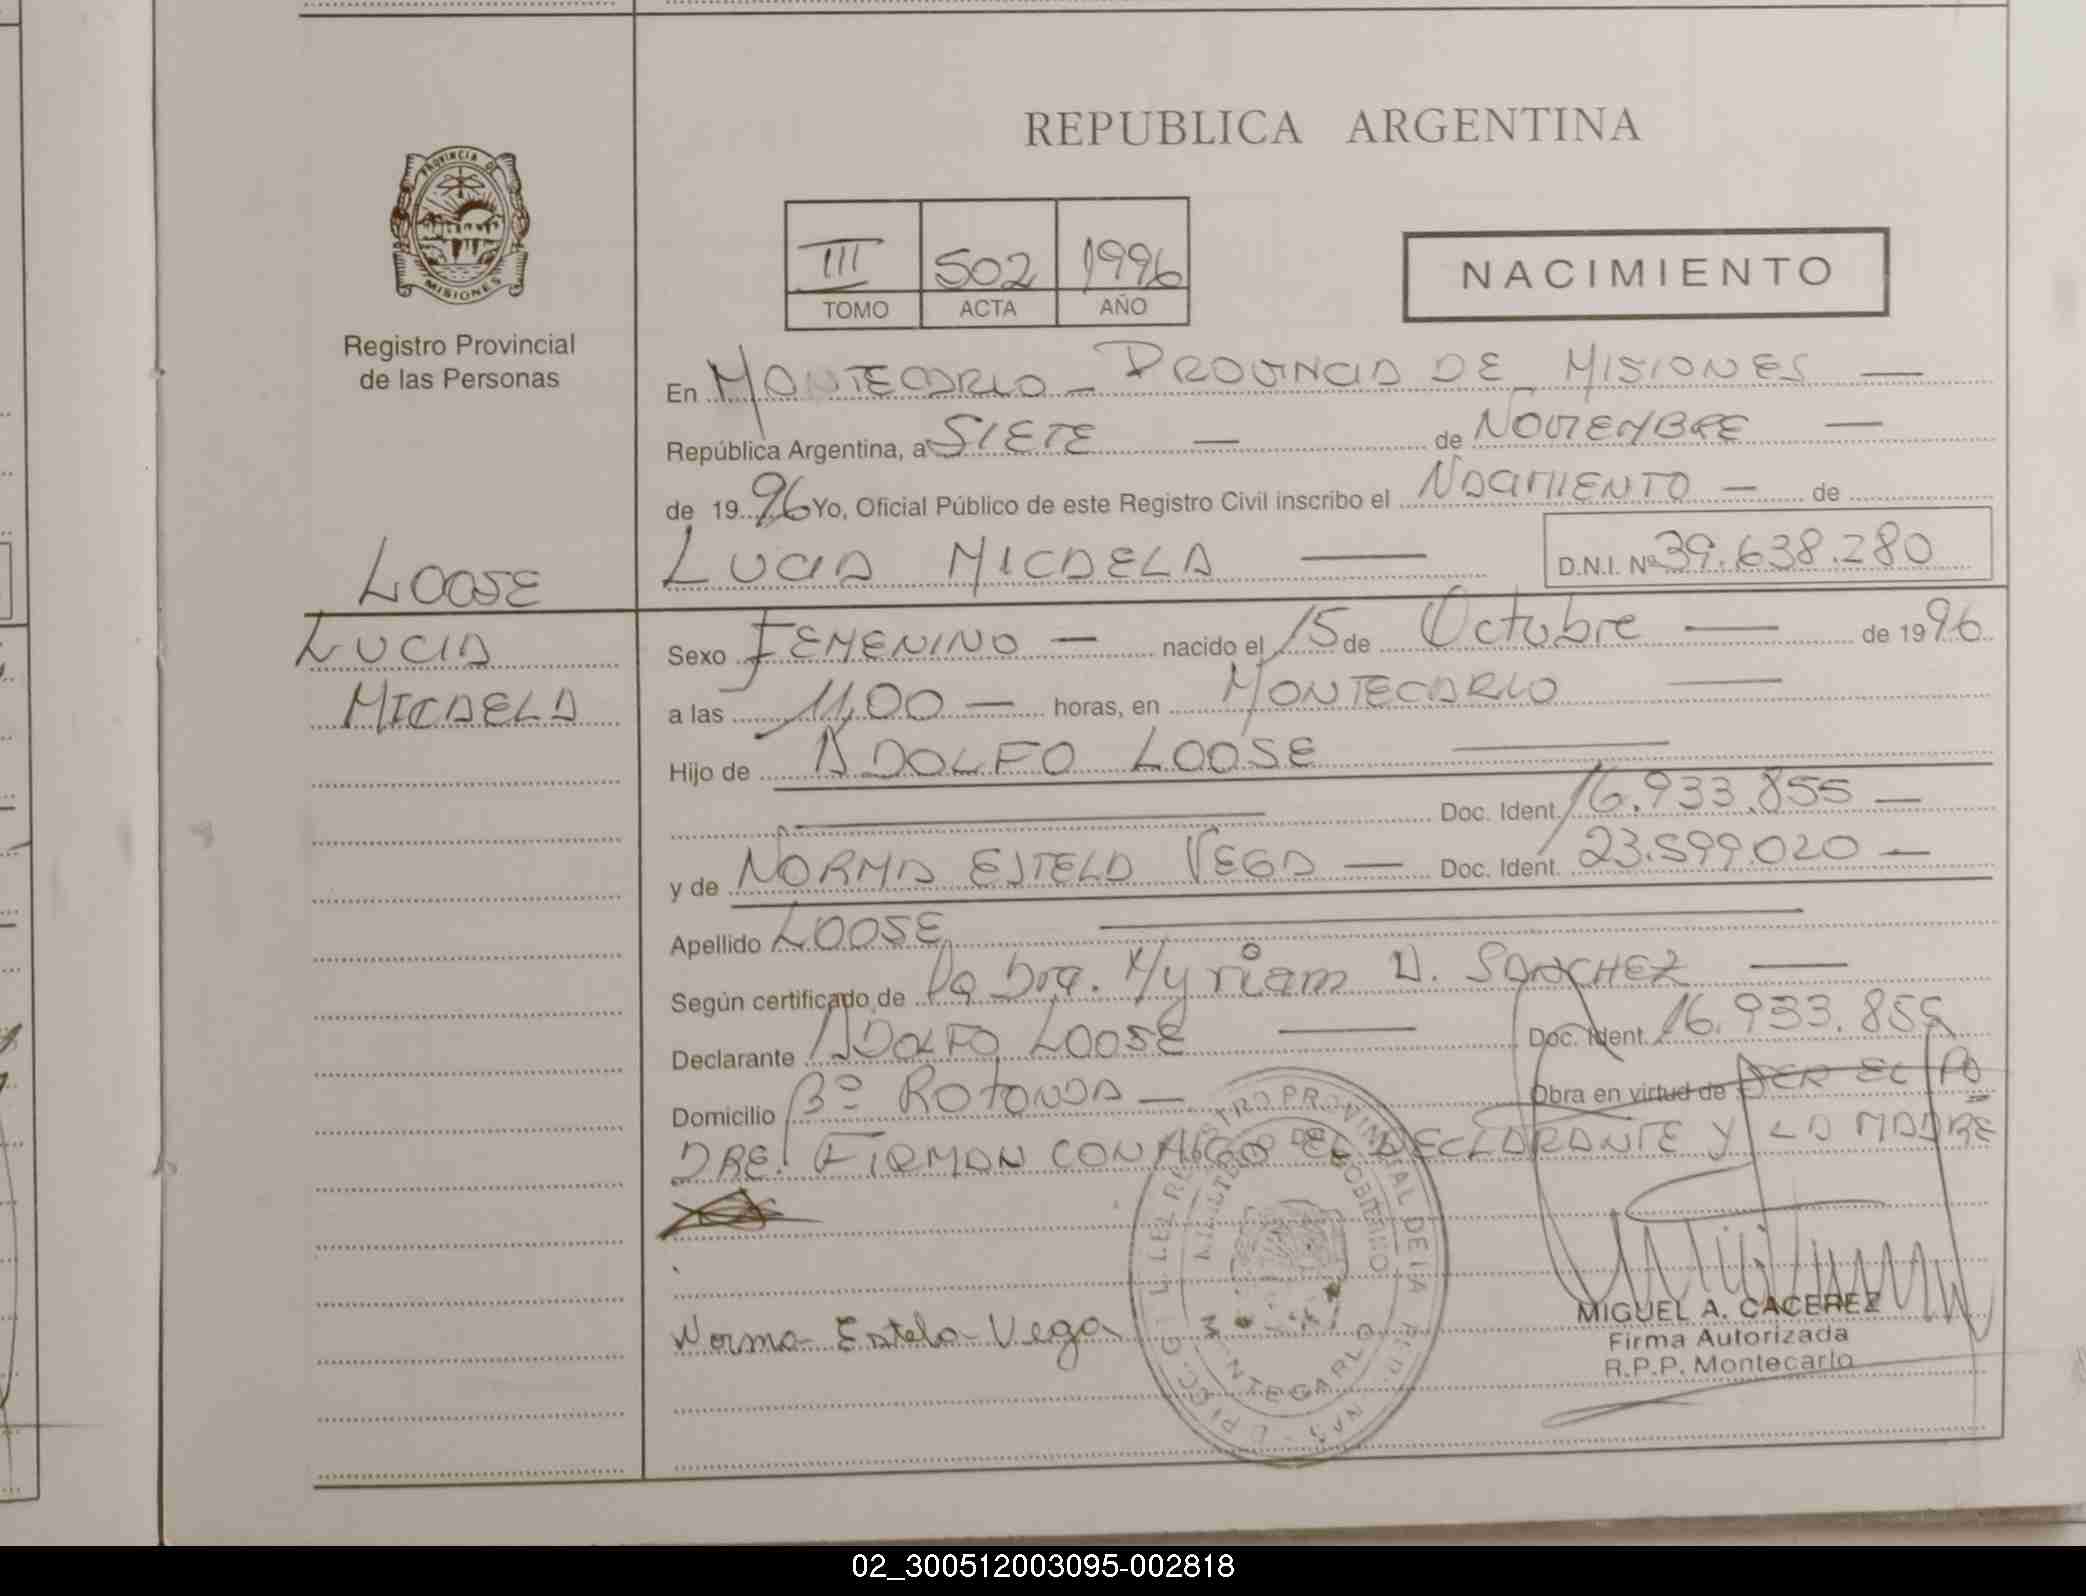 REPUBLICA ARGENTINA
PROVINCIA DE
MISIONES
Registro Provincial
de las Personas
III 502 1996
TOMO ACTA AÑO
NACIMIENTO
En MONTECARLO - PROVINCIA DE MISIONES —
República Argentina, a SIETE — de NOVIEMBRE —
de 1996 Yo, Oficial Público de este Registro Civil inscribo el NACIMIENTO — de
LUCIA MICAELA — D.N.I. Nº 39.638.280
LOOSE
LUCIA
MICAELA
Sexo FEMENINO — nacido el 15 de Octubre — de 1996
a las 11,00 — horas, en MONTECARLO —
Hijo de ADOLFO LOOSE —
— Doc. Ident. 16.933.855 —
y de NORMA ESTELA VEGA — Doc. Ident. 23.599.020 —
Apellido LOOSE —
Según certificado de la Dra. Myriam A. SANCHEZ —
Declarante ADOLFO LOOSE — Doc. Ident. 16.933.855
Domicilio 3º ROTONDA — Obra en virtud de SER EL PA
DRE. FIRMAN CONMIGO EL DECLARANTE Y LA MADRE
Norma Estela Vega
MONTECARLO
MIGUEL A. CACEREZ
Firma Autorizada
R.P.P. Montecarlo
02_300512003095-002818